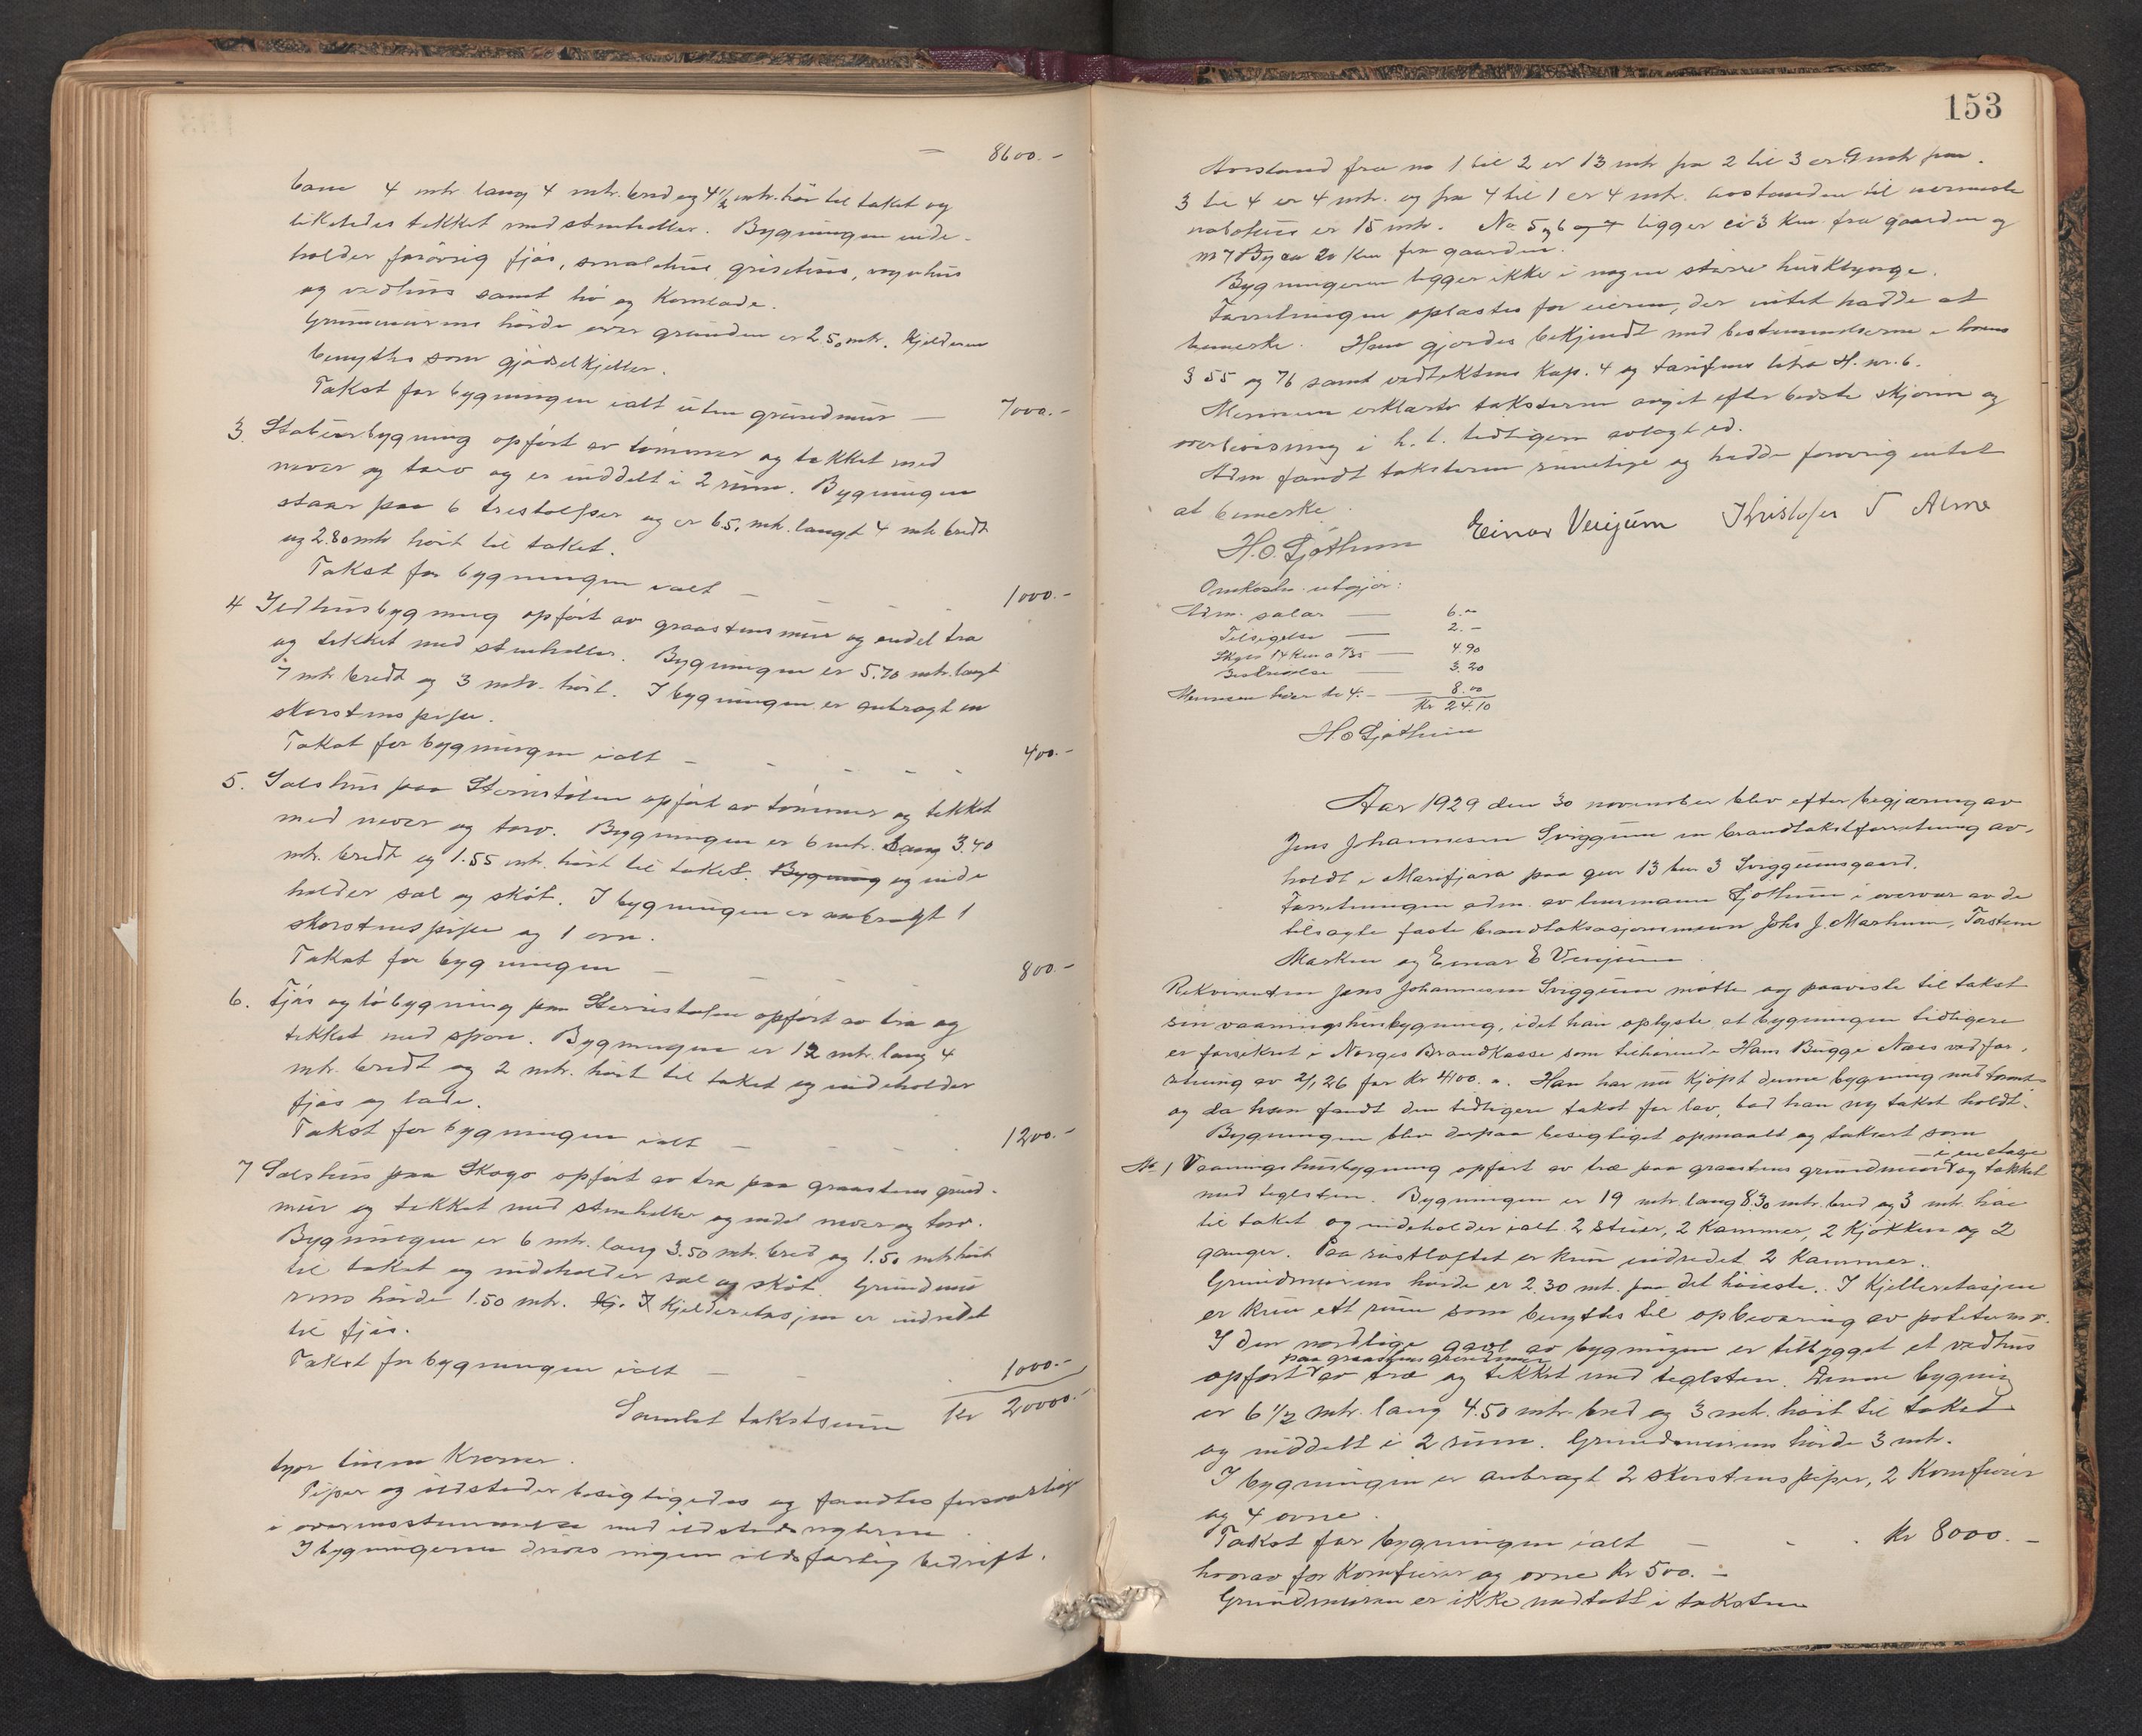 — 8600.-
bane 4 mtr. lang 4 mtr. bred og 4½ mtr. høi til taket og
likeledes tekket med stenheller. Bygningen inde-
holder forøvrig fjøs, smalehus, grisehus, vognhus
og vedhus samt hø og Kornlade.
Grunmurens høide over grunden er 2.50 mtr. Kjelderen
benyttes som gjødselkjeller.
Takst for bygningen ialt uten grundmur — 7000.-
3. Stabursbygning opført av tømmer og tekket med
never og torv og er inddelt i 2 rum. Bygningen
staar paa 6 trestolper og er 6.5. mtr. langt 4 mtr. bredt
og 2.80 mtr høit til taket.
Takst for bygningen ialt — — - - 1000.-
4 Ildhusbygning opført av graastensmur og endel træ
og tekket med stenheller. Bygningen er 5.70 mtr. langt
5 mtr. bredt og 3 mtr. høit. I bygningen er anbragt en
skorstenspipe.
Takst for bygningen ialt - - - - - 400.-
5. Selshus paa opført av tømmer og tekket
med never og torv. Bygningen er 6 mtr. lang 3.40
mtr. bredt og 1.55 mtr. høit til taket. Bygning og inde
holder sel og skôt. I bygningen er anbragt 1
skorstenspipe og 1 ovn.
Takst for bygningen — — - - 800.-
6. Fjøs og løbygning paa opført av træ og
tekket med spon. Bygningen er 12 mtr. lang 4
mtr. bredt og 2 mtr. høit til taket og indeholder
fjøs og lade.
Takst for bygningen ialt — - - - 1200.-
7 Selshus paa Skogo opført av træ paa graastens grund-
mur og tekket med stenheller og endel never og torv.
Bygningen er 6 mtr. lang 3.50 mtr. bred og 1.50 mtr. høit
til taket og indeholder sel og skôt. Grundmu
rens høide 1.50 mtr. Kj. I Kjelderetasjen er indredet
til fjøs.
Takst for bygningen ialt — - . 1000.-
Samlet takstsum Kr 20000.-
tyve tusen Kroner.
Piper og ildsteder besigtigedes og fandtes forsvarlige
i overensstemmelse med ildstedsreglerne.
I bygningerne drives ingen ildsfarlig bedrift.
153
Avstand fra no 1 til 2 er 13 mtr fra 2 til 3 er 9 mtr fra
3 til 4 er 4 mtr. og fra 4 til 1 er 4 mtr. avstanden til nermeste
nabohus er 15 mtr. No 5 og 6 og 7 ligger ca 3 Km. fra gaarden og
no 7 ca 20 Km fra gaarden.
Bygningerne ligger ikke i nogen større husklynge.
Forretningen oplæstes for eieren, der intet hadde at
bemerke. Han gjordes bekjendt med bestemmelserne i lovens
§ 55 og 76 samt vedtektens Kap. 4 og tarifens litra H. nr. 6.
Mennene erklærte taksterne avgit efter bedste skjønn og
overbevisning i h. t. tidligere avlagt ed.
Adm fandt taksterne rimelige og hadde forøvrig intet
at bemerke.
H.O. Fjøthum Einar Venjum Kristofer T Alme
Omkostn. utgjør:
Adm. salær — 6.00
Tilsigelse — 2.-
Skyss 14 Km a /35 — 4.90
— 3.20
Mennene hver kr 4.- — 8.00
Kr 24.10
H.O Fjøthum
Aar 1929 den 30 november blev efter begjæring av
Jens Johannesen Sviggum en brandtakstforretning av-
holdt i Marifjæra paa gnr 13 bnr 3 Sviggumsgaard.
Forretningen adm. av lensmann Fjøthum i overvær av de
tilsagte faste brandtaksasjonsmenn Johs J. Marheim, Torstein
Marken og Einar E Venjum.
Rekvirenten Jens Johannesen Sviggum møtte og paaviste til takst
sin vaaningshusbygning, idet han oplyste, at bygningen tidligere
er forsikret i Norges Brandkasse som tilhørende Hans Bugge Næss ved for-
retning av 2/1 26 for Kr 4100.-. Han har nu kjøpt denne bygning med tomt
og da han fandt den tidligere takst for lav, bad han ny takst holdt.
Bygningen blev derpaa besigtiget opmaalt og taksert som
No 1 Vaaningshusbygning opført av træ paa graastens grundmur i en etage og tekket
med teglsten. Bygningen er 19 mtr. lang 8.30 mtr. bred og 3 mtr. høi
til taket og indeholder ialt 2 stuer, 2 Kammer, 2 Kjøkken og 2
ganger. Paa røstloftet er kun indredet 2 Kammer.
Grundmurens høide er 2.30 mt. paa det høieste. I Kjelleretasjen
er kun ett rum som benyttes til opbevaring av poteter m v.
I den nordlige gavl av bygningen er tilbygget et vedhus
opført paa graastens grundmur av træ og tekket med teglsten. Denne bygning
er 6½ mtr. lang 4.50 mtr. bred og 3 mtr. høit til taket
og inddelt i 2 rum. Grundmurens høide 3 mtr.
I bygningen er anbragt 2 skorstenspiper, 2 Komfurer
og 4 ovne.
Takst for bygningen ialt — - . Kr 8000.-
hvorav for Komfurer og ovne Kr 500.-
Grundmuren er ikke medtatt i taksten